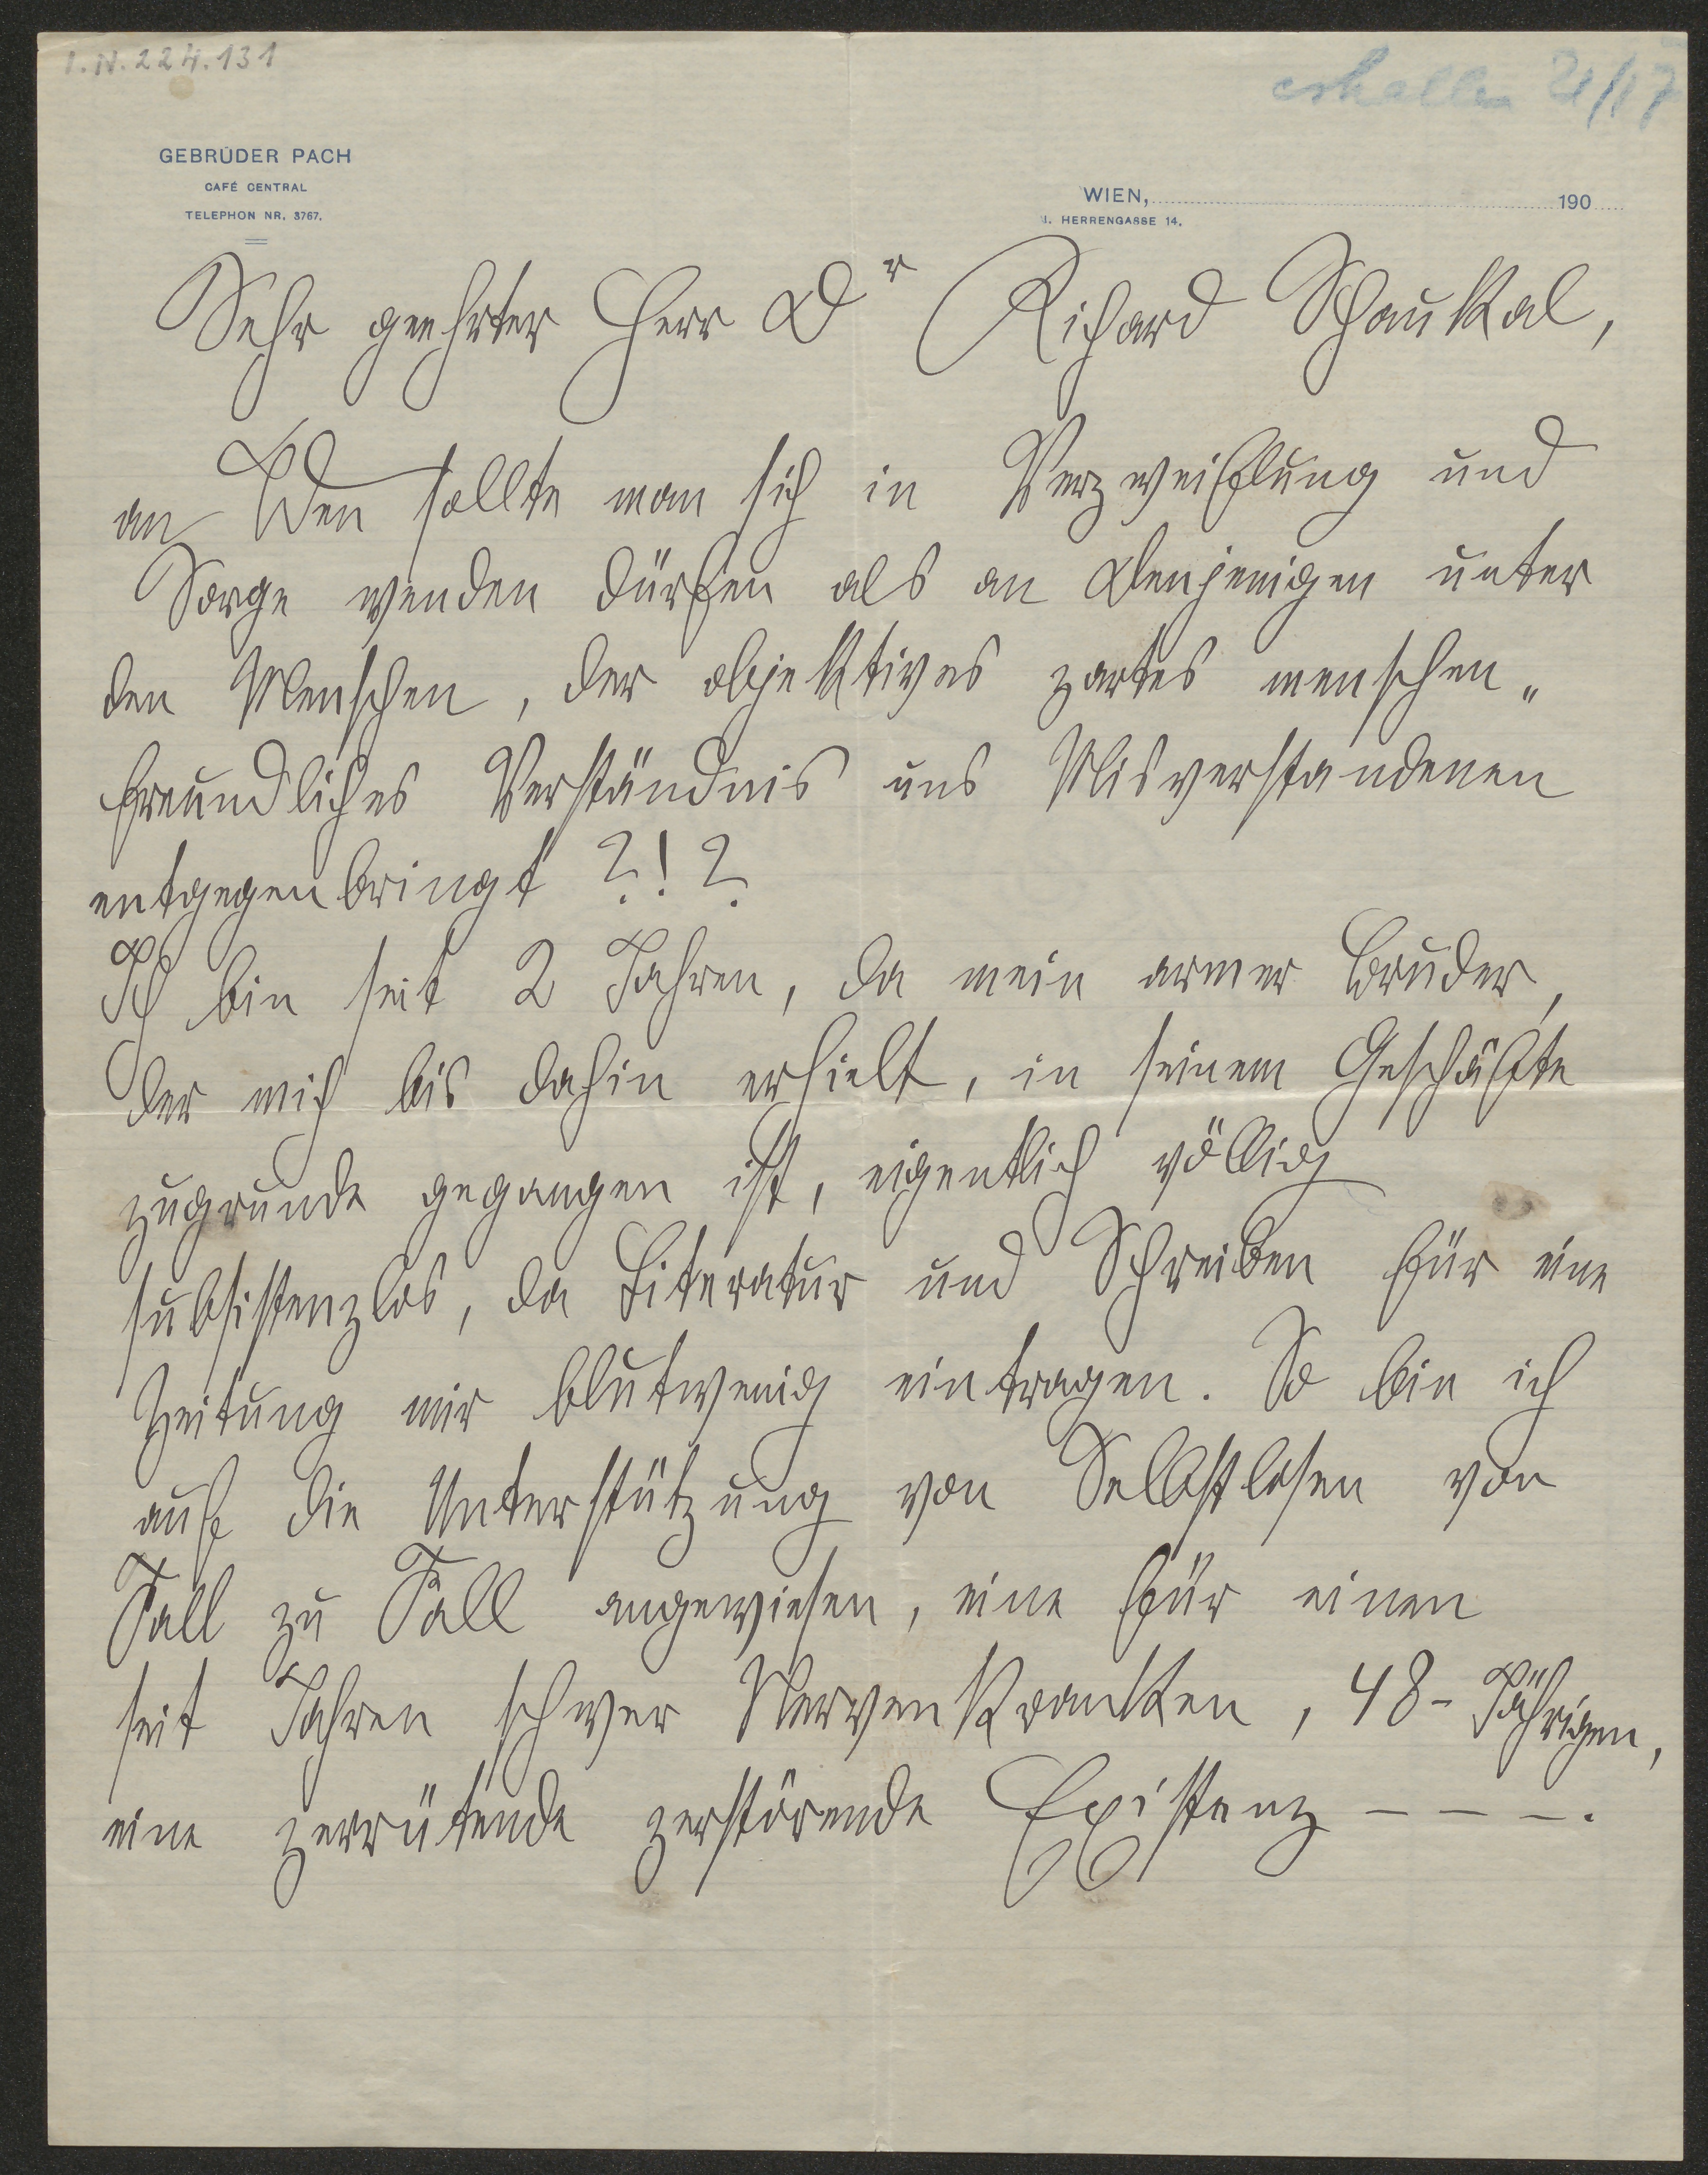 I.N.224.131
erhalten 21/17
GEBRÜDER PACH
CAFÉ CENTRAL
TELEPHON NR. 3767.
WIEN, 190
I. HERRENGASSE 14.
Sehr geehrter Herr Dr Richard Schaukal,
an Wen sollte man sich in Verzweiflung und
Sorge wenden dürfen als an Denjenigen unter
den Menschen, der objektives zartes menschen„
freundliches Verständnis uns Misverstandenen
entgegenbringt ?!?
Ich bin seit 2 Jahren, da mein armer Bruder,
der mich bis dahin erhielt, in seinem Geschäfte
zugrunde gegangen ist, eigentlich völlig
subsistenzlos, da Literatur und Schreiben für eine
Zeitung mir blutwenig eintragen. So bin ich
auf die Unterstützung von Selbstlosen von
Fall zu Fall angewiesen, eine für einen
seit Jahren schwer Nervenkranken, 48-Jährigen,
eine zerrütende zerstörende Existenz — — —.